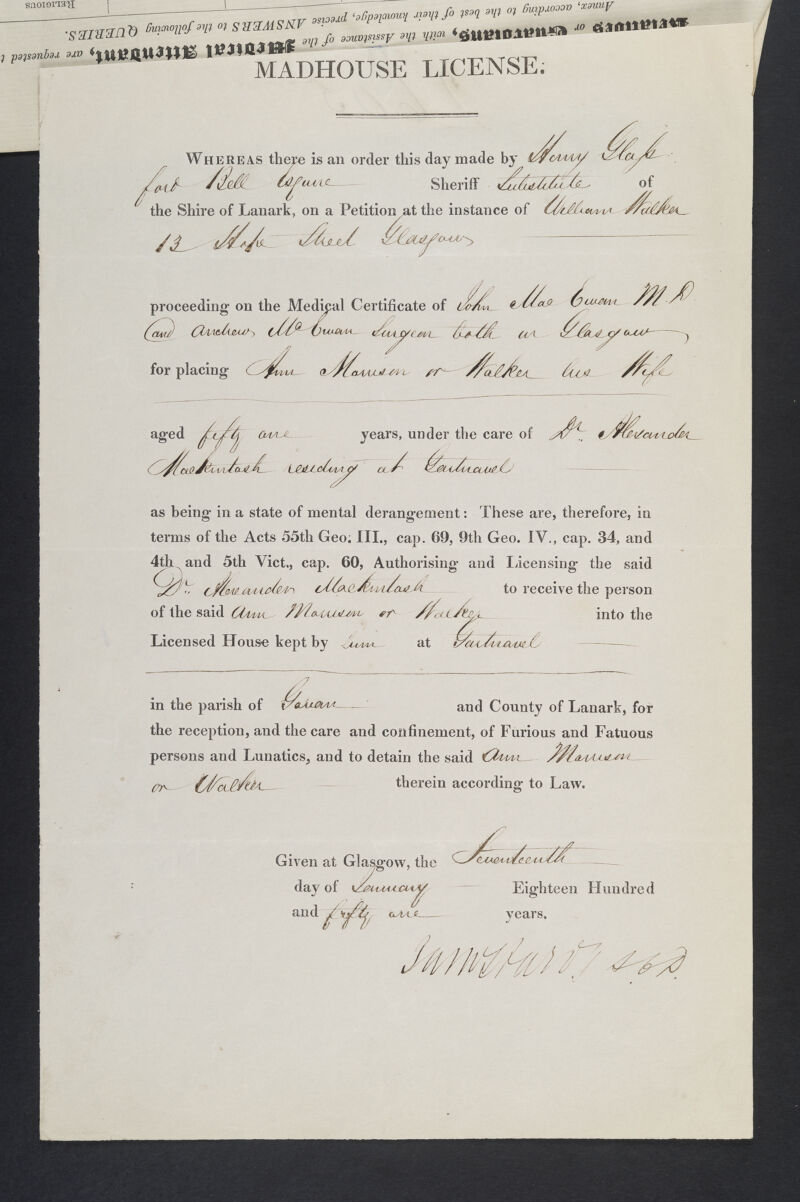 Religious
Annex, according to the best of their knowledge, precise ANSWERS to the following QUERIES.
Relatives or Guardians, with the Assistance of the Medical Attendant, are requested
MADHOUSE LICENSE.
WHEREAS there is an order this day made by Henry Glass
ford Bell Esquire Sheriff Substitute of
the Shire of Lanark, on a Petition at the instance of William Walker
13 Hope Street Glasgow
proceeding on the Medical Certificate of John Mac Ewan M.D
(and Andrew McEwan Surgeon both in Glasgow)
for placing Ann Morrison or Walker his Wife
aged fifty one years, under the care of Dr. Alexander
Mackintosh residing at Gartnavel
as being in a state of mental derangement: These are, therefore, in
terms of the Acts 55th Geo. III., cap. 69, 9th Geo. IV., cap. 34, and
4th and 5th Vict., cap. 60, Authorising and Licensing the said
Dr. Alexander Mackintosh to receive the person
of the said Ann Morrison or Walker into the
Licensed House kept by him at Gartnavel
in the parish of Govan and County of Lanark, for
the reception, and the care and confinement, of Furious and Fatuous
persons and Lunatics, and to detain the said Ann Morrison
or Walker therein according to Law.
Given at Glasgow, the Seventeenth
day of January Eighteen Hundred
and fifty one years.